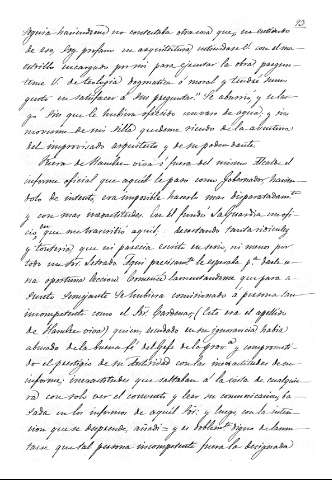 13
que habiéndome no contestaba otra cosa que, en entiendo
de eso, soy profano en arquitectura entiéndase V. con el ma-
estrillo encargado por mí para ejecutar la obra pregún-
teme V. de teología dogmática ó moral y tendré sumo
gusto en satisfacer á sus preguntas." Se aburrió y se lar-
gó sin que le hubiera ofrecido un vaso de agua, y sin
moverme de mi silla quedeme riendo de la aventura
del improvisado arquitecto y de su poderdante.
Fuera de Hambre-viva ó fuera del mismo Alcalde el
informe oficial que aquel le pasó como Gobernador, hacién-
dolo de intento, era imposible hacerlo más disparatadamte
y con más inexactitudes. En él funda La Guardia un ofi-
cio, en que me transcribía aquel, descartando tanta ridiculez
y tontería que ni parecía escrito en serio, ni menos por
todo un Sor. Letrado. Tomé precisamte. la segunda pa. darle u-
na oportuna leccion. Comencé lamentándome que para a-
sunto semejante se hubiera comisionado á persona tan
incompetente como el Sor. Cardenas, (éste era el apellido
de Hambre viva) quien, escudado en su ignorancia había
abusado de la buena fé del Gefe de la prova. y comprometi-
do el prestigio de su Autoridad con las inexactitudes de su
informe; inexactitudes que saltaban á la vista de cualquie-
ra con solo ver el convento y leer su comunicacion, ba-
sada en los informes de aquel Sor: y luego, con la inten-
ción que se desprende, añadí = y es doblemte. digno de lamen-
tarse que tal persona incompetente fuera la designada